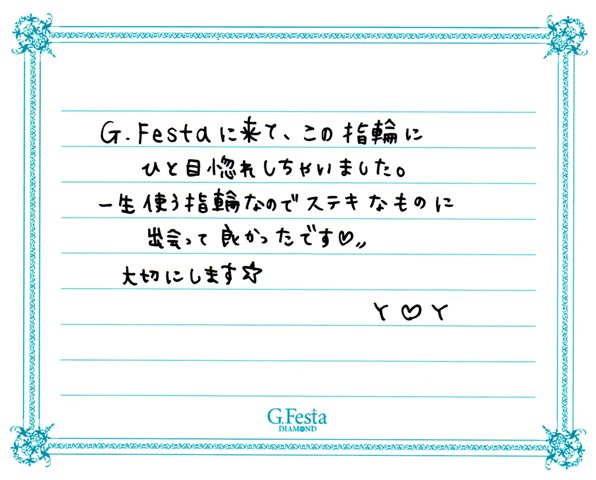 G.Festaに来て、この指輪に
ひと目惚れしちゃいました。
一生使う指輪なのでステキなものに
出会って良かったです♡〃
大切にします☆
Y♡Y
G.Festa
DIAMOND